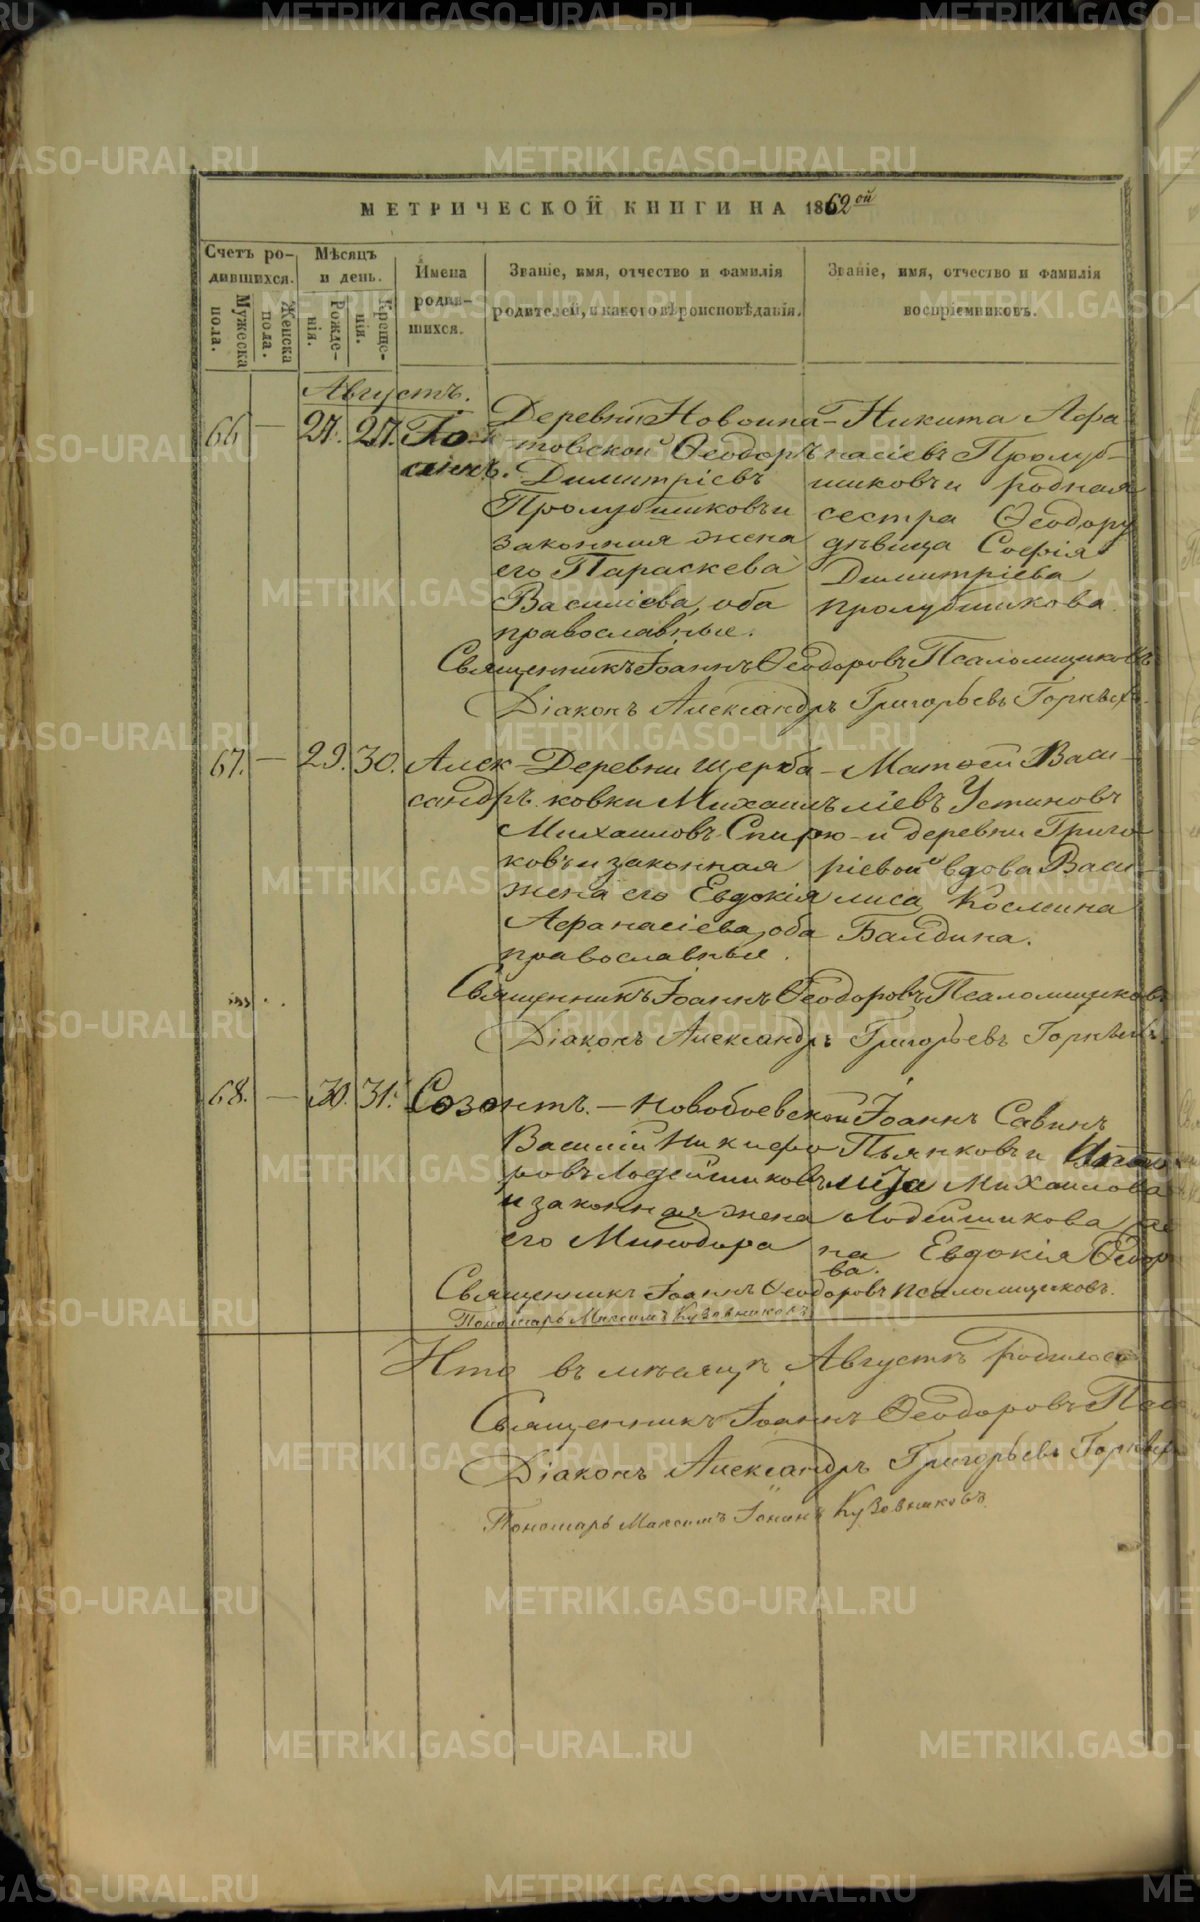 МЕТРИЧЕСКОЙ КНИГИ НА 1862ой
Счетъ ро-
дившихся.
Мужеска
пола.
Женска
пола.
Мѣсяцъ
и день.
Рожде-
нія.
Креще-
нія.
Имена
родив-
шихся.
Званіе, имя, отчество и фамилія
родителей, и какого вѣроисповѣданія.
Званіе, имя, отчество и фамилія
воспріемниковъ.
Августъ.
66 — 27. 27.
Деревни Новоипа-
товской Ѳеодоръ
Димитріевъ
Пролубшиковъ и
законная жена
его Параскева
Василіева, оба
православные.
Никита Афа-
насіевъ Пролуб-
шиковъ и родная
сестра Ѳеодору
дѣвица Софія
Димитріева
Пролубшикова.
Священникъ Іоаннъ Ѳеодоровъ Псаломщиковъ
Діаконъ Александръ Григорьевъ Горныхъ
67. — 29. 30. Алек-
сандръ.
Деревни Щерба-
ковки Михаилъ
Михаиловъ Спирю-
ковъ и законная
жена его Евдокія
Афанасіева, оба
православные.
Матѳей Васи-
ліевъ Устиновъ
и деревни Григо
ріевой вдова Васи-
лиса Космина
Балдина.
Священникъ Іоаннъ Ѳеодоровъ Псаломщиковъ
Діаконъ Александръ Григорьевъ Горныхъ
68. — 30. 31. Созонтъ.
Новобоевской
Василій Никифо
ровъ Лодейшиковъ
и законная жена
его Минодора
Іоаннъ Савинъ
Пьянковъ и
Михаилова
Лодейшикова
на Евдокія Ѳедор
ва.
Священникъ Іоаннъ Ѳеодоровъ Псаломщиковъ.
Пономарь Максимъ Кузовниковъ
Что въ мѣсяцѣ Августѣ родилось
Священникъ Іоаннъ Ѳеодоровъ Пса
Діаконъ Александръ Григорьевъ Горныхъ
Пономарь Максимъ Іонинъ Кузовниковъ.
METRIKI.GASO-URAL.RU